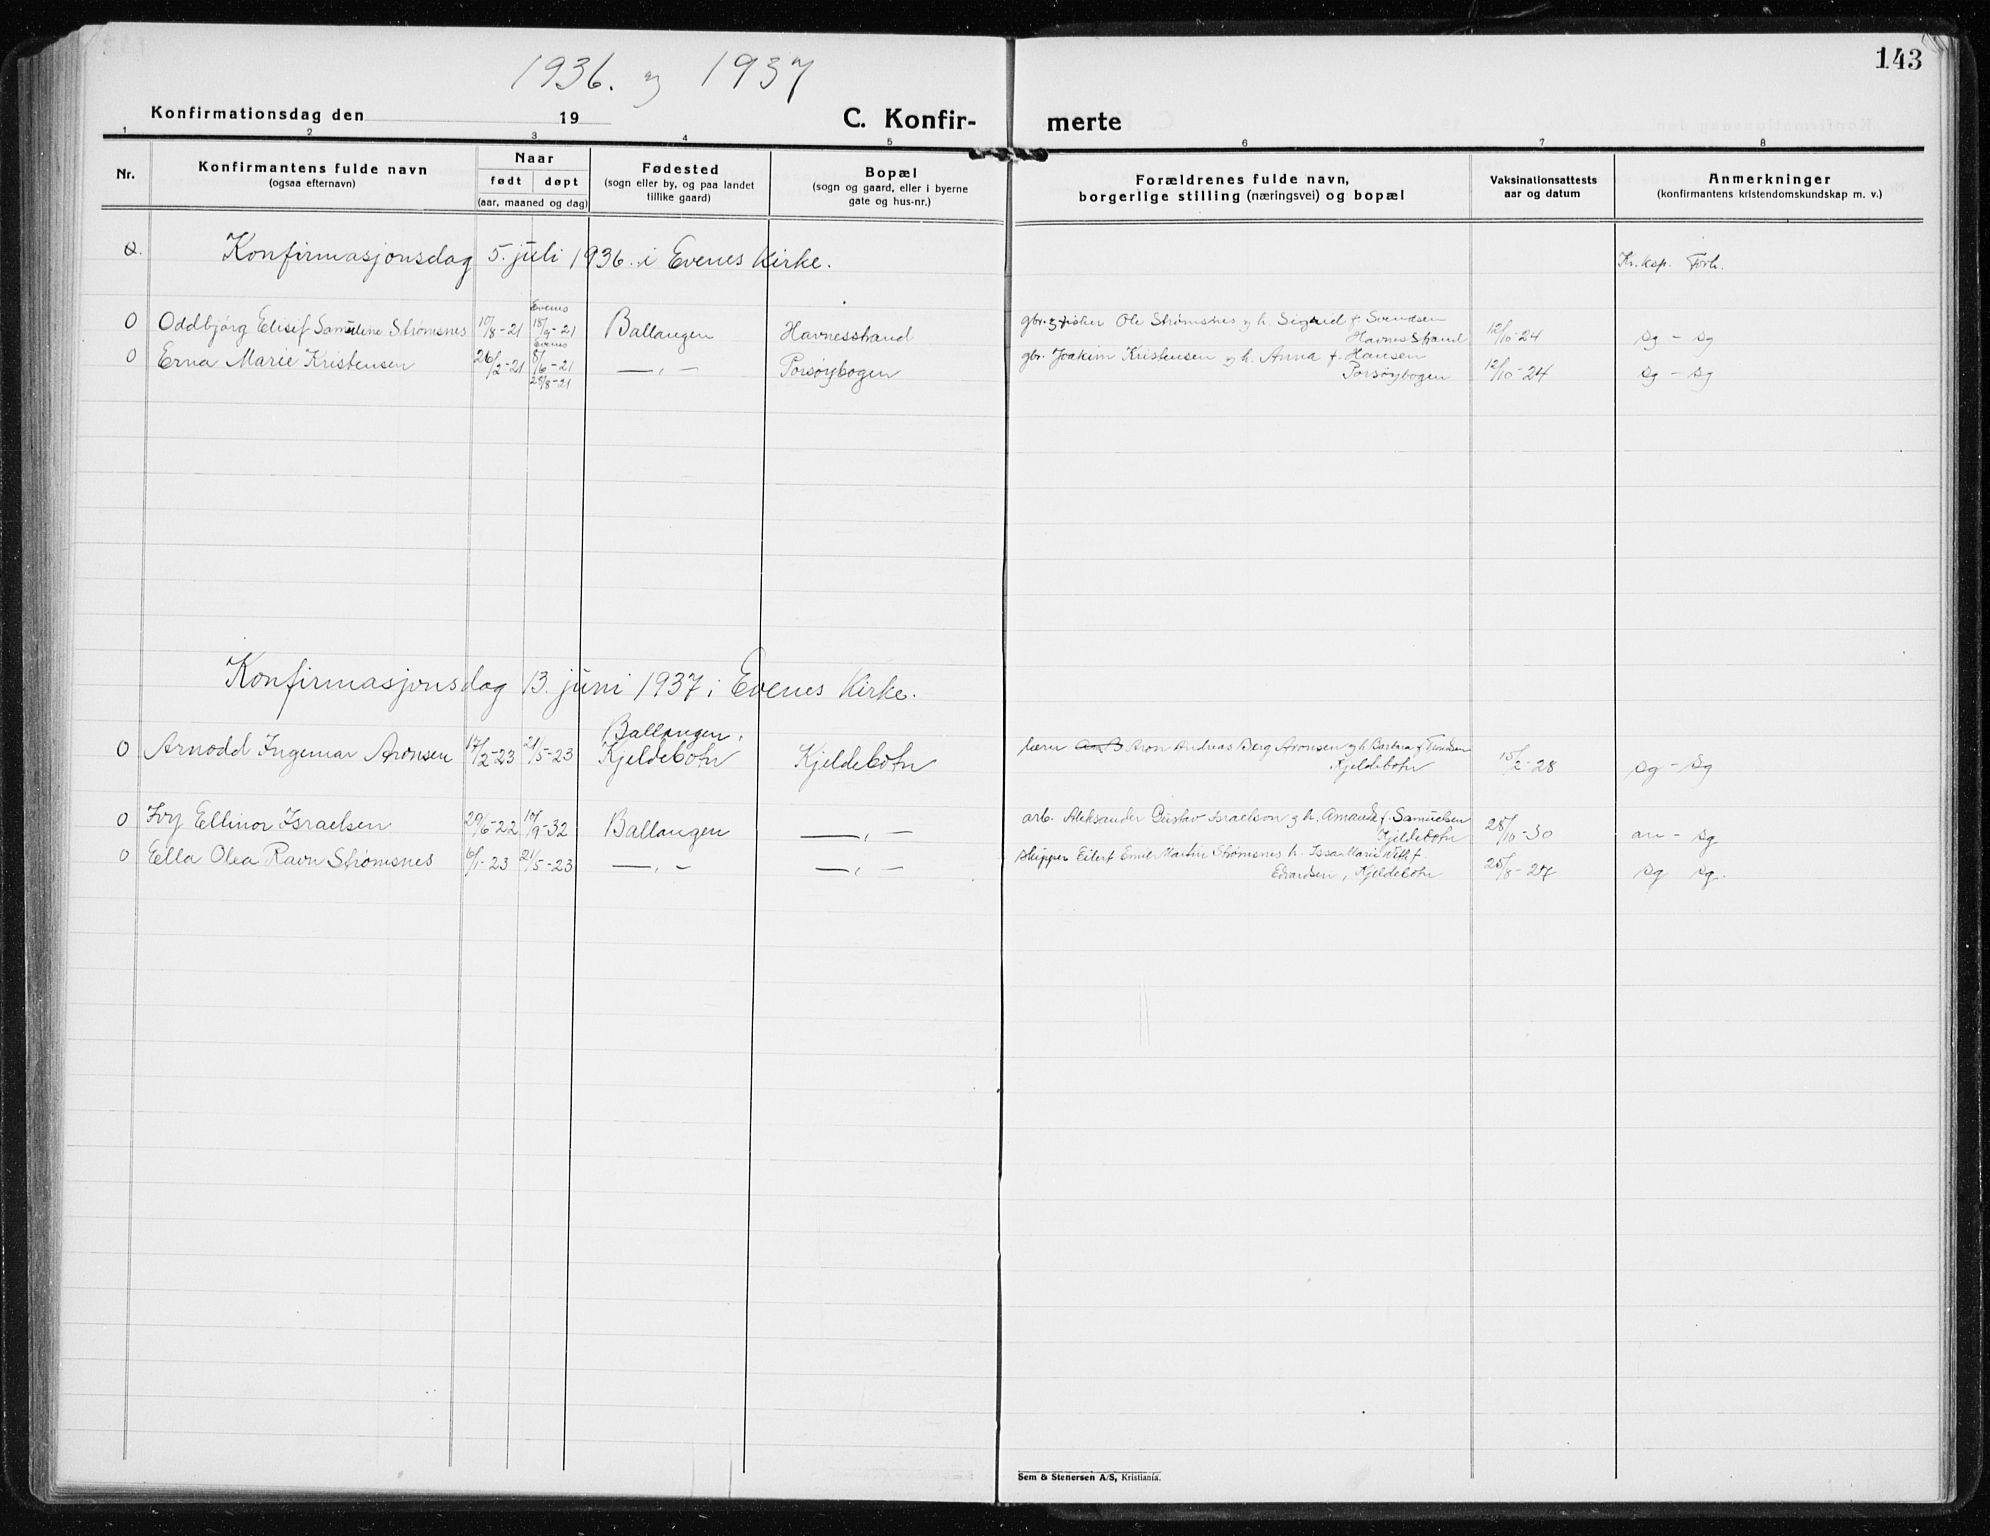 143
1936. og 1937
Konfirmationsdag den 19
C. Konfir- merte
1 2 3 4 5 6 7 8
Nr.
Konfirmantens fulde navn
(ogsaa efternavn)
Naar
født døpt
(aar, maaned og dag)
Fødested
(sogn eller by, og paa landet
tillike gaard)
Bopæl
(sogn og gaard, eller i byerne
gate og hus-nr.)
Forældrenes fulde navn,
borgerlige stilling (næringsvei) og bopæl
Vaksinationsattests
aar og datum
Anmerkninger
(konfirmantens kristendomskundskap m. v.)
Konfirmasjonsdag 5. juli 1936. i Evenes Kirke.
Kr. ksp. Forh.
0 Oddbjørg Elisif Samuline Strømsnes 10/8-21 Evenes 18/9-21 Ballangen Havnesstrand gbr. og fisker Ole Strømsnes og h. Sigrid f. Svendsen
Havnes Strand 12/10-24 sg - sg
0 Erna Marie Kristensen 26/2-21 Evenes 5/6-21 Porsøybogen gbr. Joakim Kristensen og h. Anna f. Hansen
28/8-21 — " — Porsøybogen 12/10-24 sg - sg
Konfirmasjonsdag 13. juni 1937 i Evenes Kirke.
Ballangen.
0 Arnodd Ingemar Aronsen 17/2-23 21/5-23 Kjeldebotn Kjeldebotn Aron Andreas Berg Aronsen og h. Barbara f.
Kjeldebotn 15/2-28 sg - sg
0 Ivy Ellinor Israelsen 29/6-22 17/9-32 Ballangen — " — arb. Aleksander Gustav Israelson og h. Amanda f. Samuelsen
Kjeldebotn 28/10-30 an - sg
0 Ella Olea Ravn Strømsnes 6/1-23 21/5-23 — " — — " — skipper Eilert Emil Martin Strømsnes h.
Edvardsen, Kjeldebotn 25/8-27 sg sg.
Sem & Stenersen A/S, Kristiania.